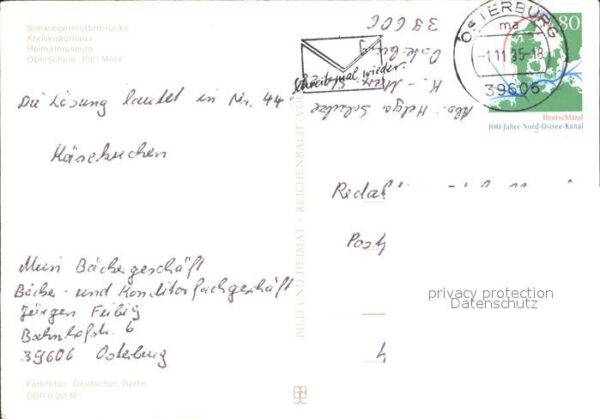 Schwiegermutterbrücke
Kreiskulturhaus
Heimatmuseum
Oberschule „Karl Marx"
Die Lösung lautet in Nr. 44:
Käsekuchen
Mein Bäckergeschäft
Bäcker- und Konditorfachgeschäft
Jürgen Feibig
Bahnhofstr. 6
39606 Osterburg
Farbfotos: Deutscher, Berlin
DDR 0,20 M
BILD UND HEIMAT · REICHENBACH
Abs. Helga Schulze
Osterburg
39606
Schreib mal wieder.
OSTERBURG
ma
-1.11.95-18
39606
80
Deutschland
100 Jahre Nord-Ostsee-Kanal
privacy protection
Datenschutz